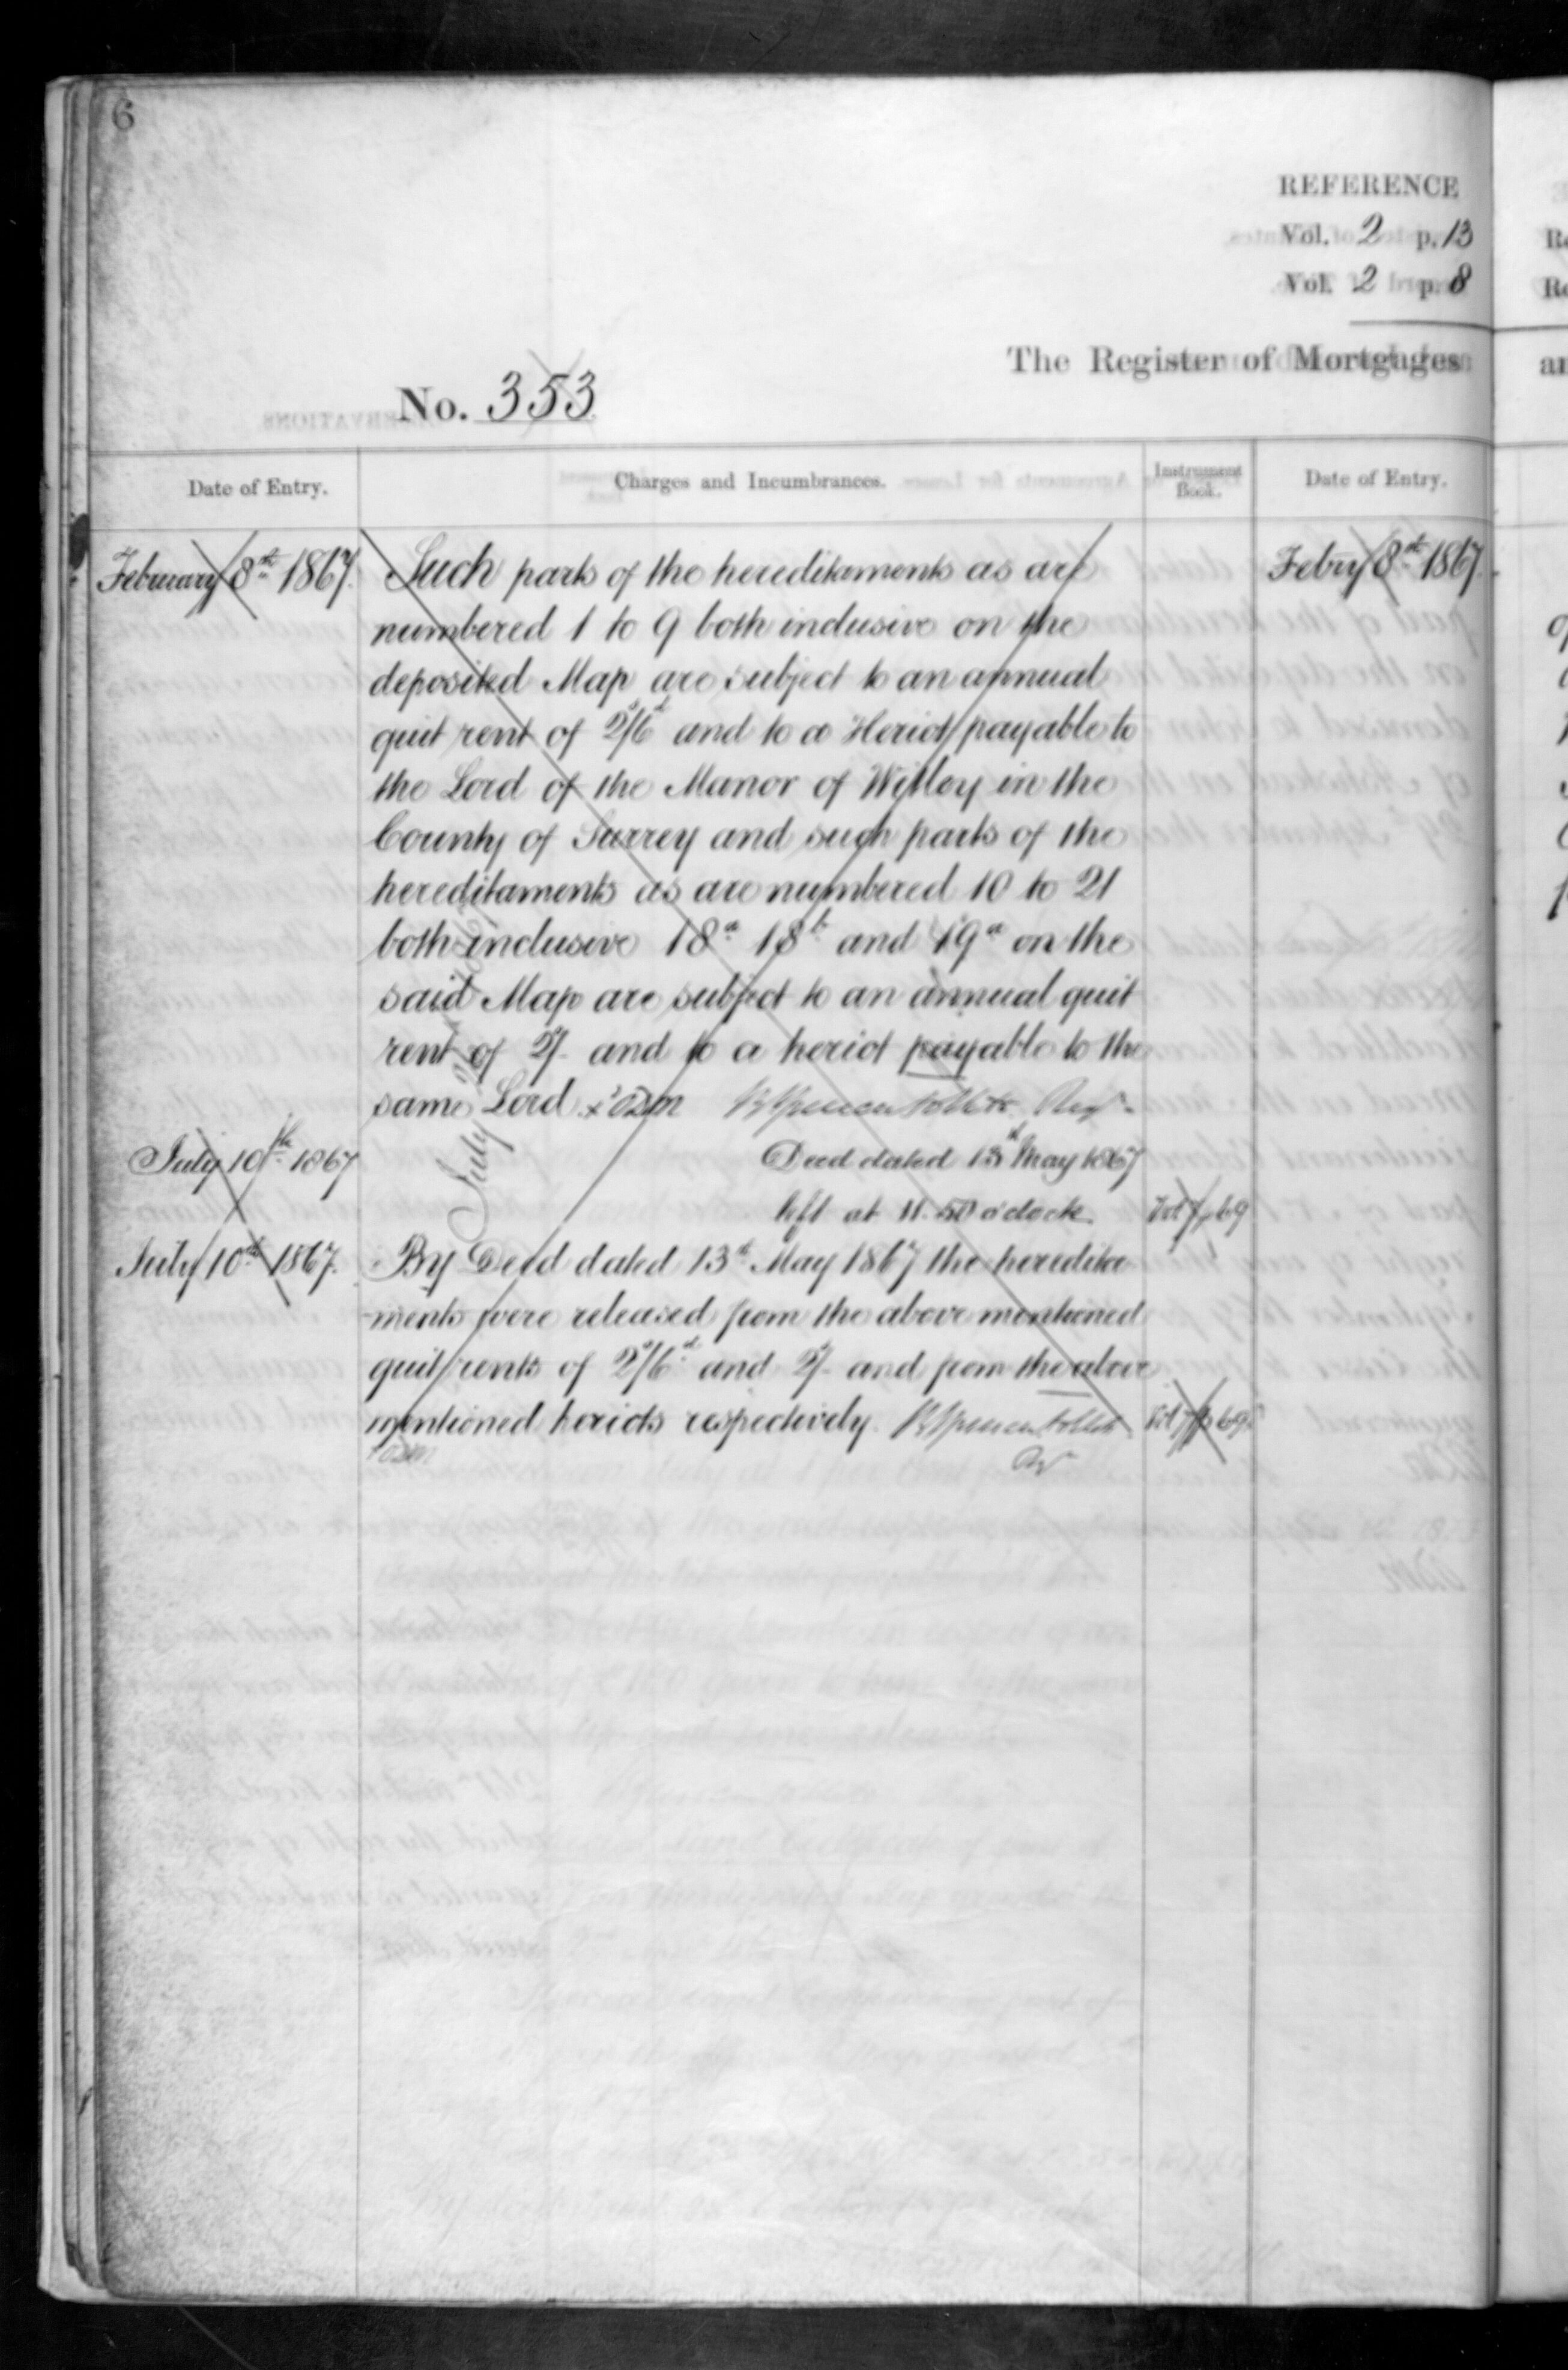 6
REFERENCE
Vol. 2 p. 13
Vol. 2 p. 8
The Register of Mortgages
No. 353
Date of Entry.
Charges and Incumbrances.
Instrument Book.
Date of Entry.
February 8th 1867.
Such parts of the hereditaments as are
Febry 8th 1867.
numbered 1 to 9 both inclusive on the
deposited Map are subject to an annual
quit rent of 2s/6d and to a Heriot payable to
the Lord of the Manor of Witley in the
County of Surrey and such parts of the
hereditaments as are numbered 10 to 21
both inclusive 18a 18b and 19a on the
said Map are subject to an annual quit
rent of 2s/- and to a heriot payable to the
same Lord
July 10th 1867
Deed dated 13th May 1867
left at 11.50 o'clock
Vol 7 p 69
July 10th 1867.
By Deed dated 13th May 1867 the heredita
-ments were released from the above mentioned
quit rents of 2s/6d and 2s/- and from the above
mentioned heriots respectively.
Vol 7 p 69
July